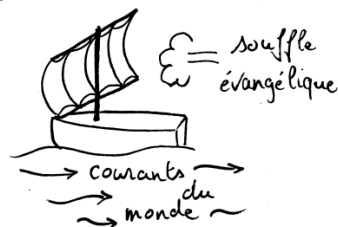 souffle
évangélique
courants
du
monde